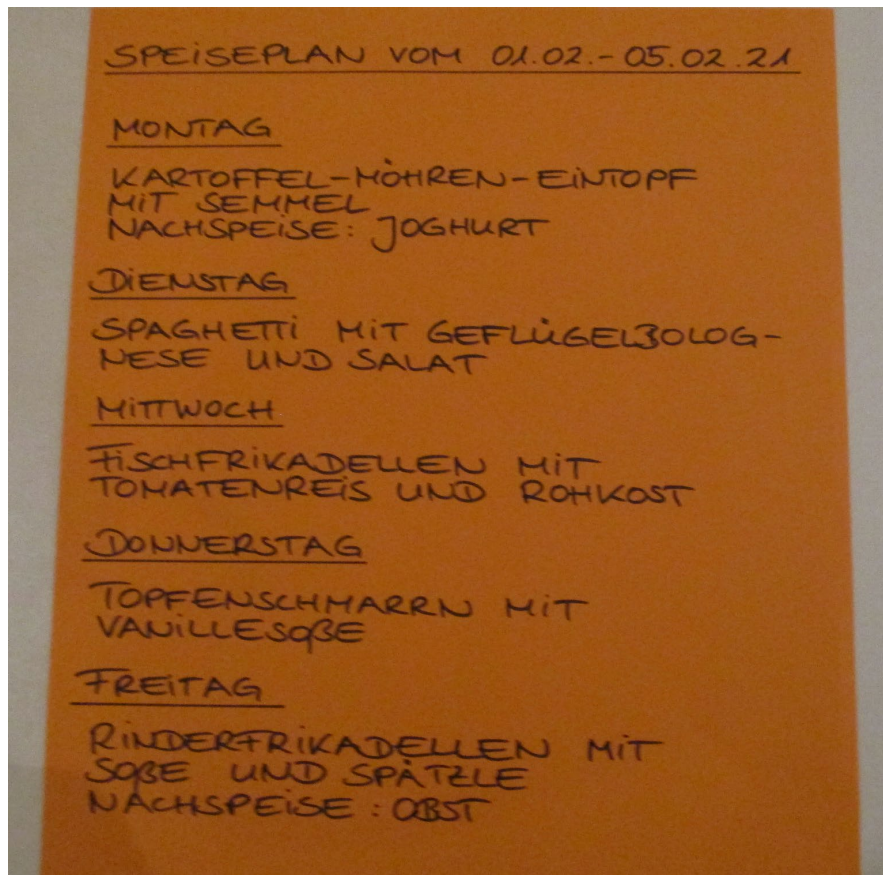 SPEISEPLAN VOM 01.02.-05.02.21
MONTAG
KARTOFFEL-MÖHREN-EINTOPF
MIT SEMMEL
NACHSPEISE: JOGHURT
DIENSTAG
SPAGHETTI MIT GEFLÜGELBOLOG-
NESE UND SALAT
MITTWOCH
FISCHFRIKADELLEN MIT
TOMATENREIS UND ROHKOST
DONNERSTAG
TOPFENSCHMARRN MIT
VANILLESOßE
FREITAG
RINDERFRIKADELLEN MIT
SOßE UND SPÄTZLE
NACHSPEISE: OBST